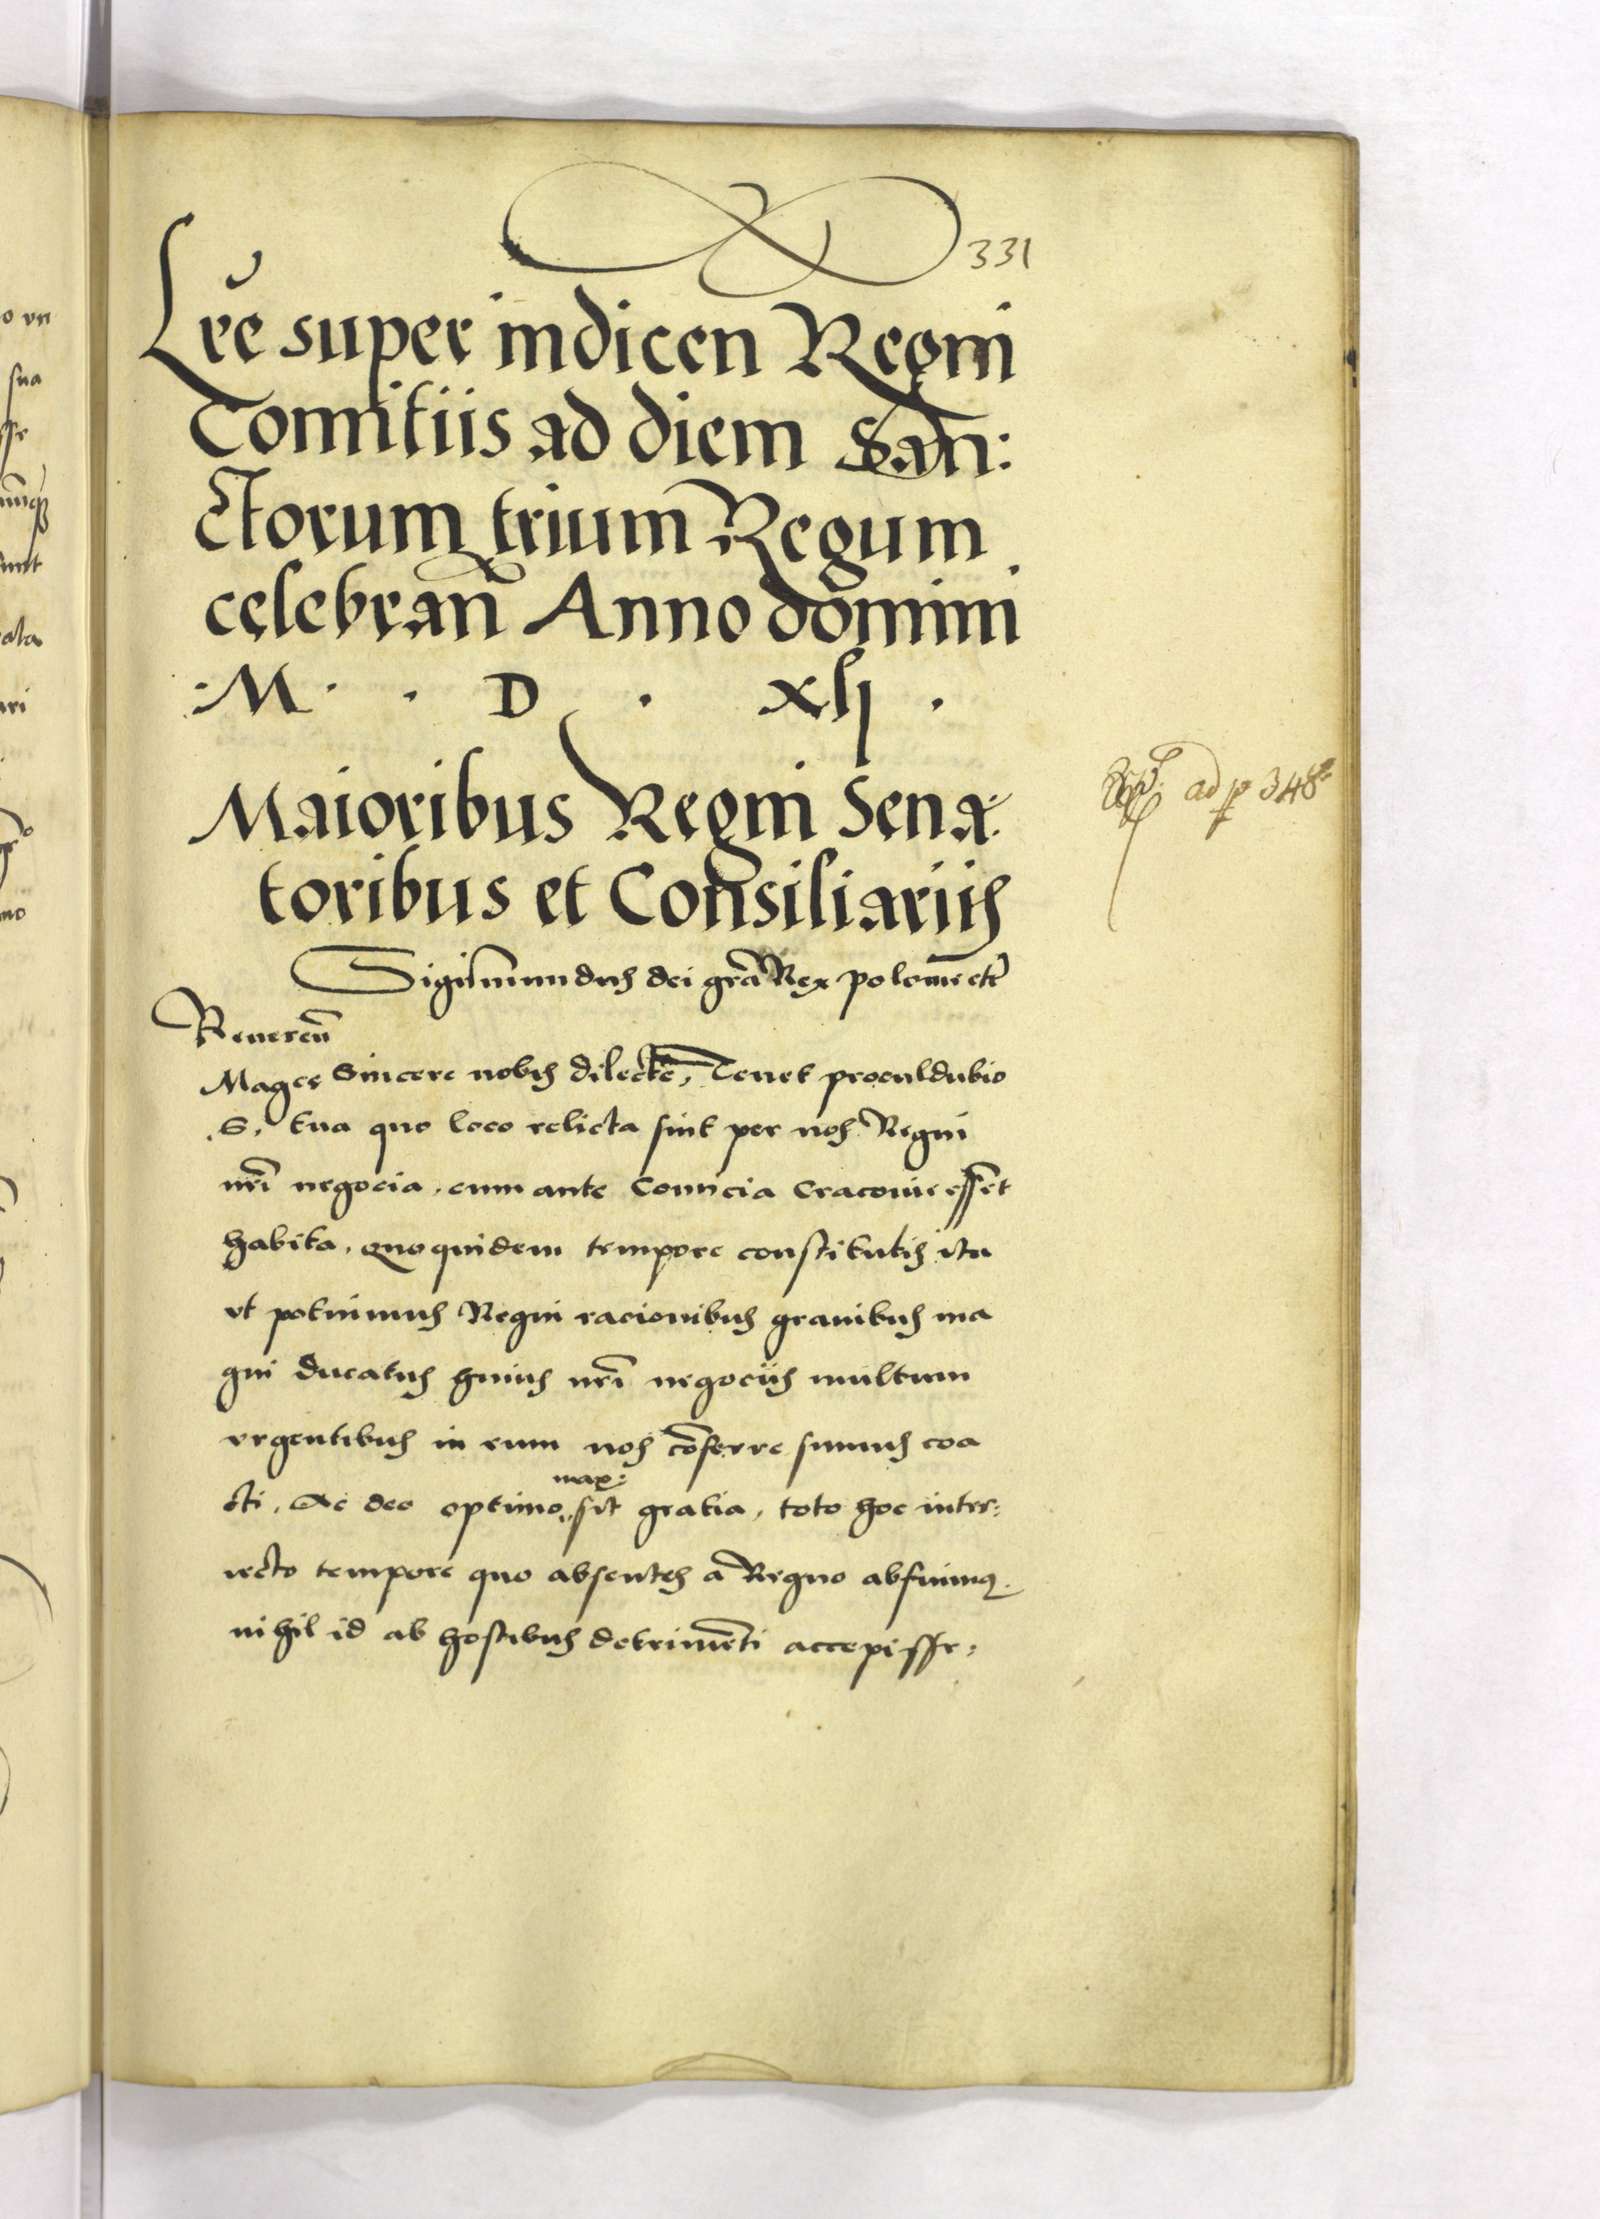 331
Lrẽ super indicen Regni
Comitiis ad diem San:
ctorum trium Regum
celebrañ Anno domini
·M· · D · xlj ·
Maioribus Regni Sena:
toribus et Consiliariis
ad p 348
Sigismundus dei gr̃a Rex polonie etc̃
Reuereñ
Magce Sincere nobis dilecte, Tenet proculdubio
.S. tua quo loco relicta sint per nos Regni
nr̃i negocia, cum ante Conuncia Cracouie essẽt
habita, Quo quidem tempore constitutis ita
vt potuimus Regni racionibus grauibus ma
gni ducatus huius nr̃i negociis multum
vrgentibus in eum nos cõferre sumus coa
cti, Ac deo optimo max: sit gratia, toto hoc inter:
iecto tempore quo absentes a Regno abfuimus
nihil id ab hostibus detrimẽti accepisse,